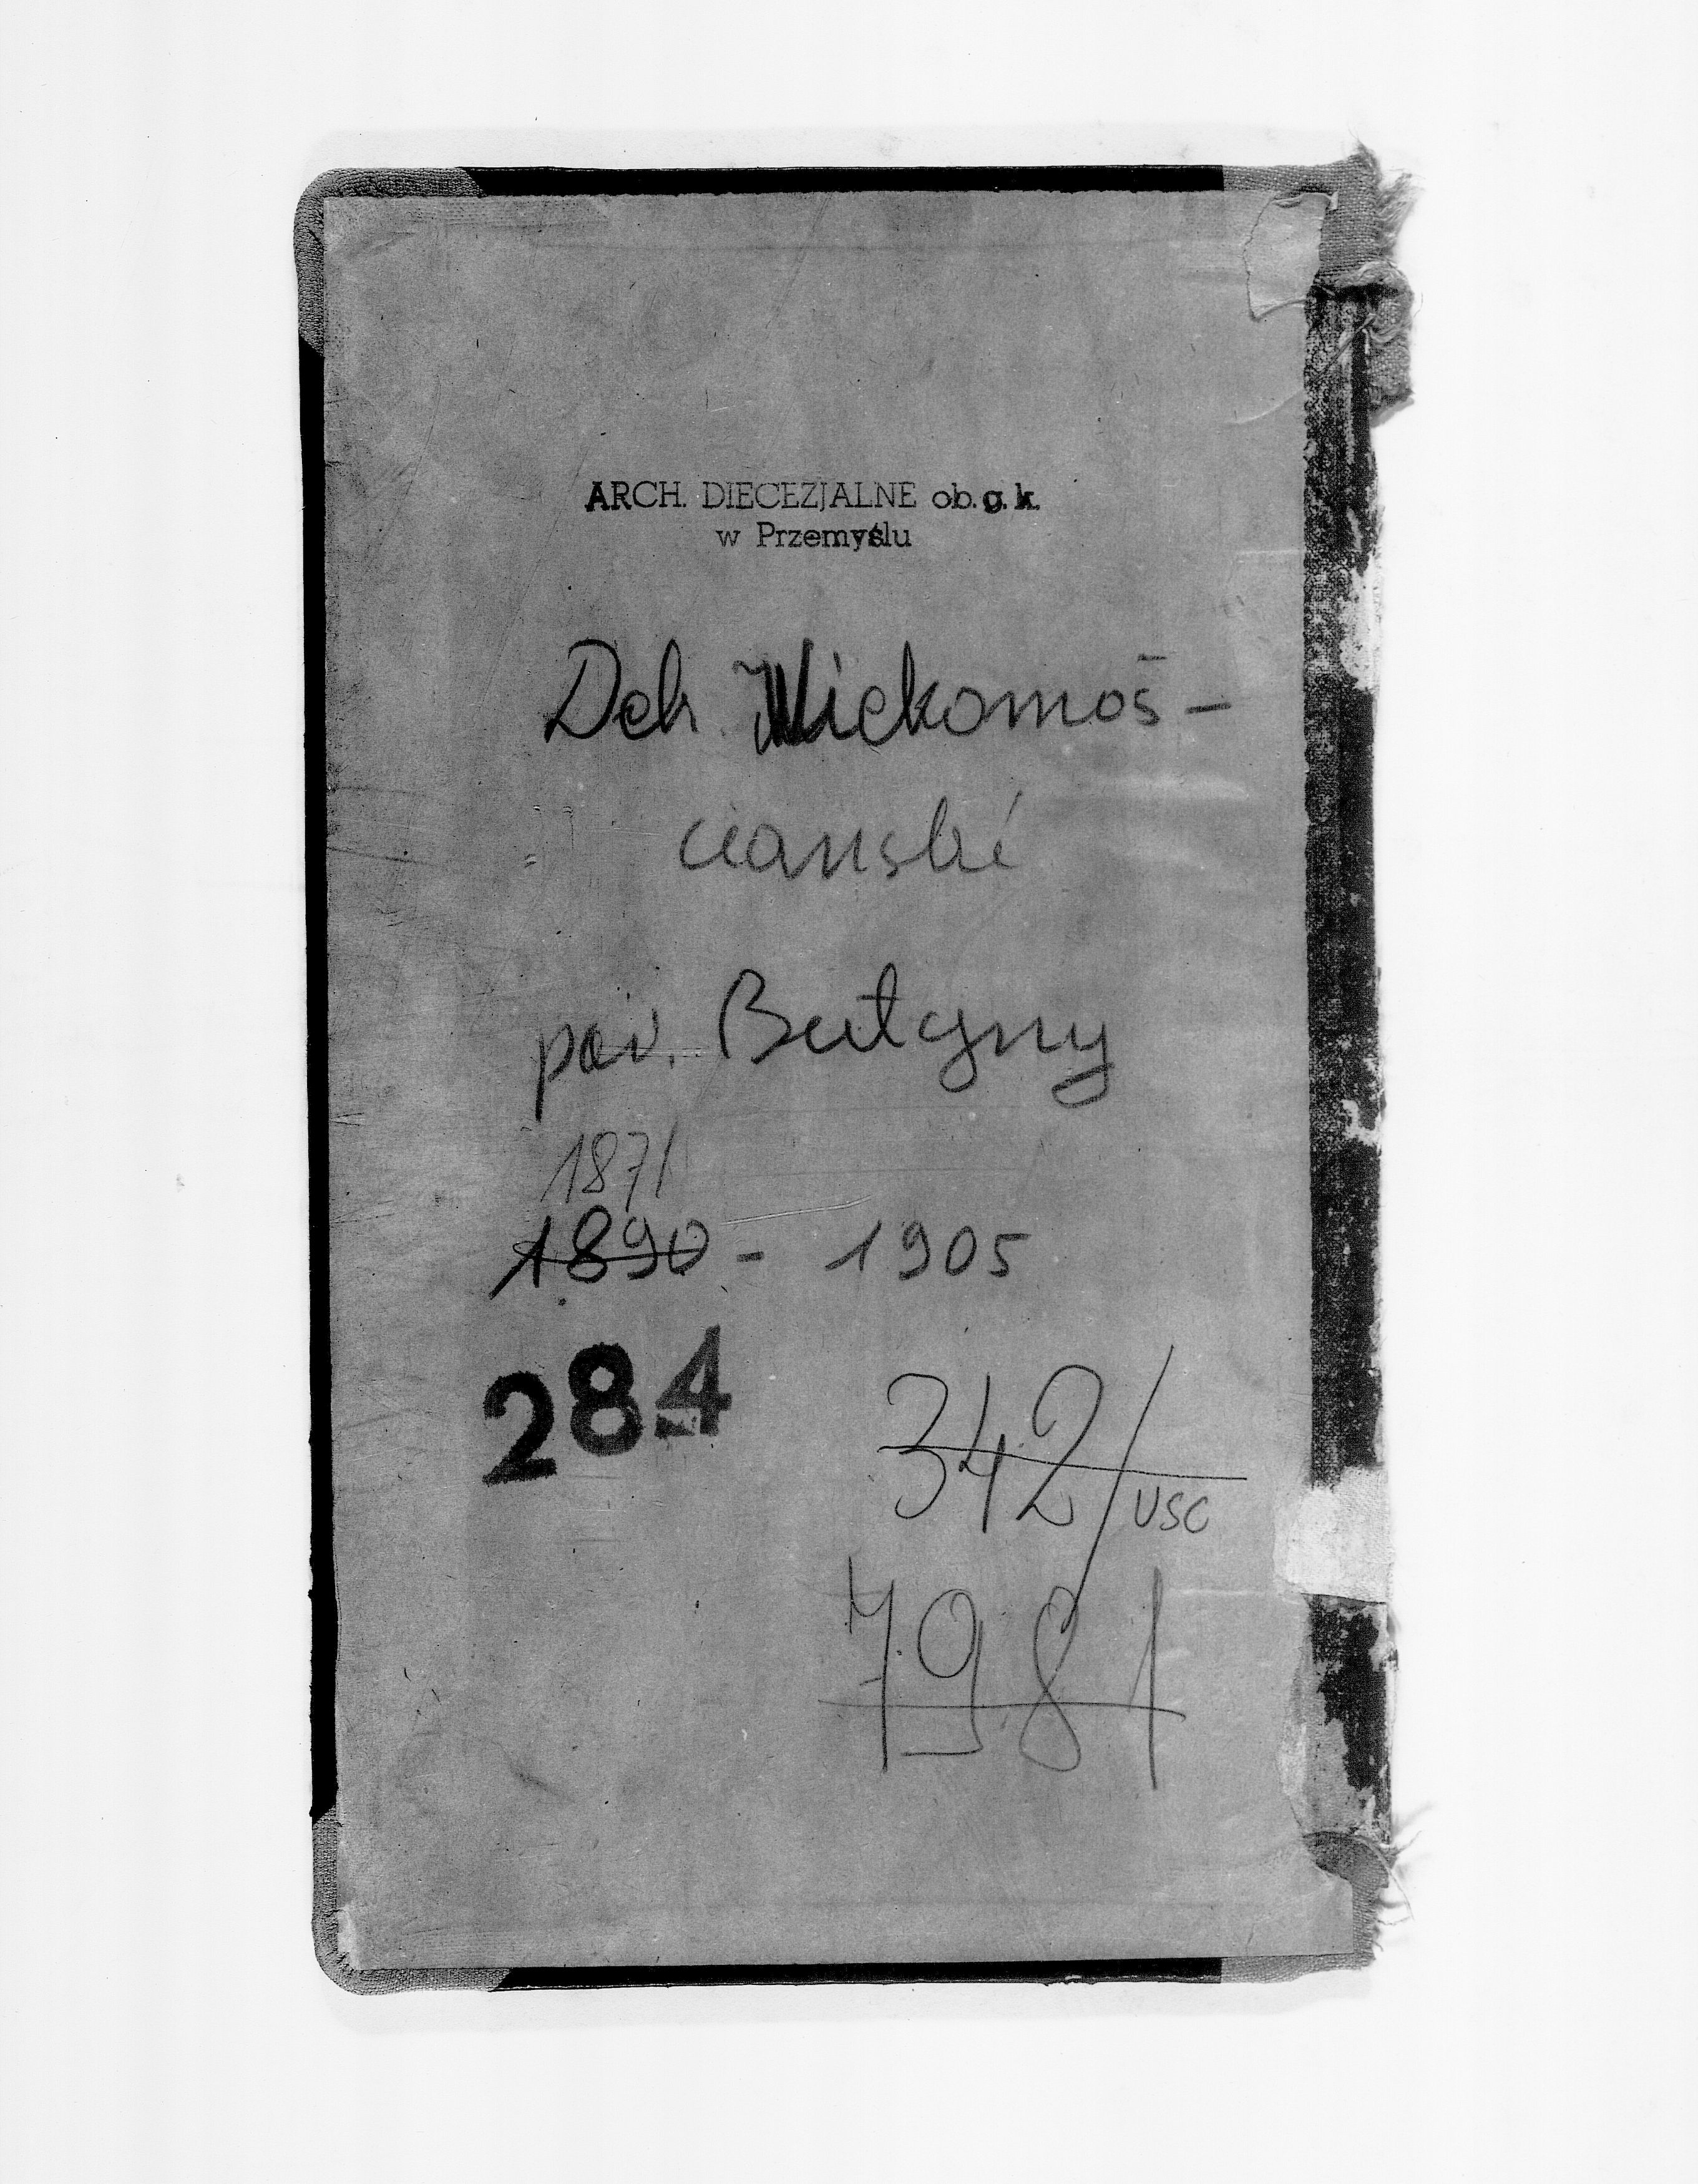 ARCH. DIECEZJALNE ob. g. k.
w Przemyślu
Dek. Wielkomoś-
cianski
par. Butyny
1871
1890 - 1905
284
342/
USC
7981